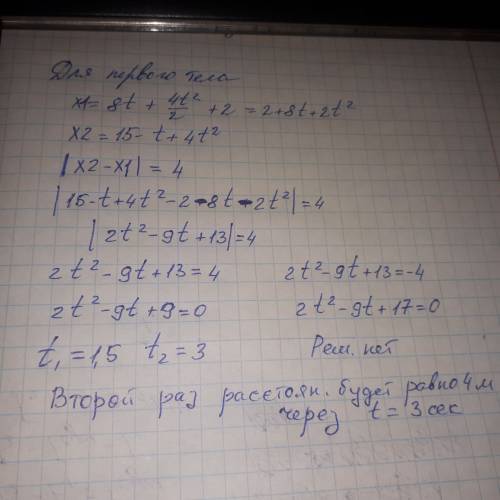 Для первого тела
x1 = 8t + 4t²/2 + 2 = 2+8t+2t²
x2 = 15 - t + 4t²
|x2 - x1| = 4
|15-t+4t²-2-8t-2t²|=4
|2t²-9t+13|=4
2t²-9t+13=4 2t²-9t+13=-4
2t²-9t+9=0 2t²-9t+17=0
t₁=1,5 t₂=3 Реш. нет
Второй раз расстоян. будет равно 4 м
через t = 3 сек